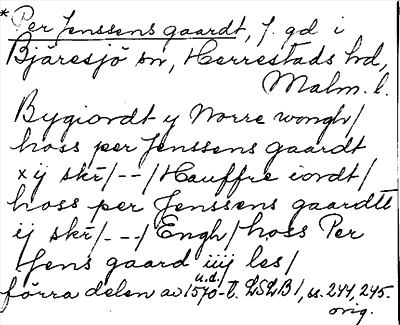 * Per Jenssens gaardt, f. gd i
Bjäresjö sn, Herrestads hd,
Malm. l.
Bygiordt y Norre wongh/
hoss per Jenssens gaardt
xij skr/--/Hauffre iordt/
hoss per Jenssens gaardtt
ij skr/---/Engh/hoss Per
Jens gaard iiij les/
förra delen av 1570-t. LSLB1, ss. 244, 245.
u.d.
orig.